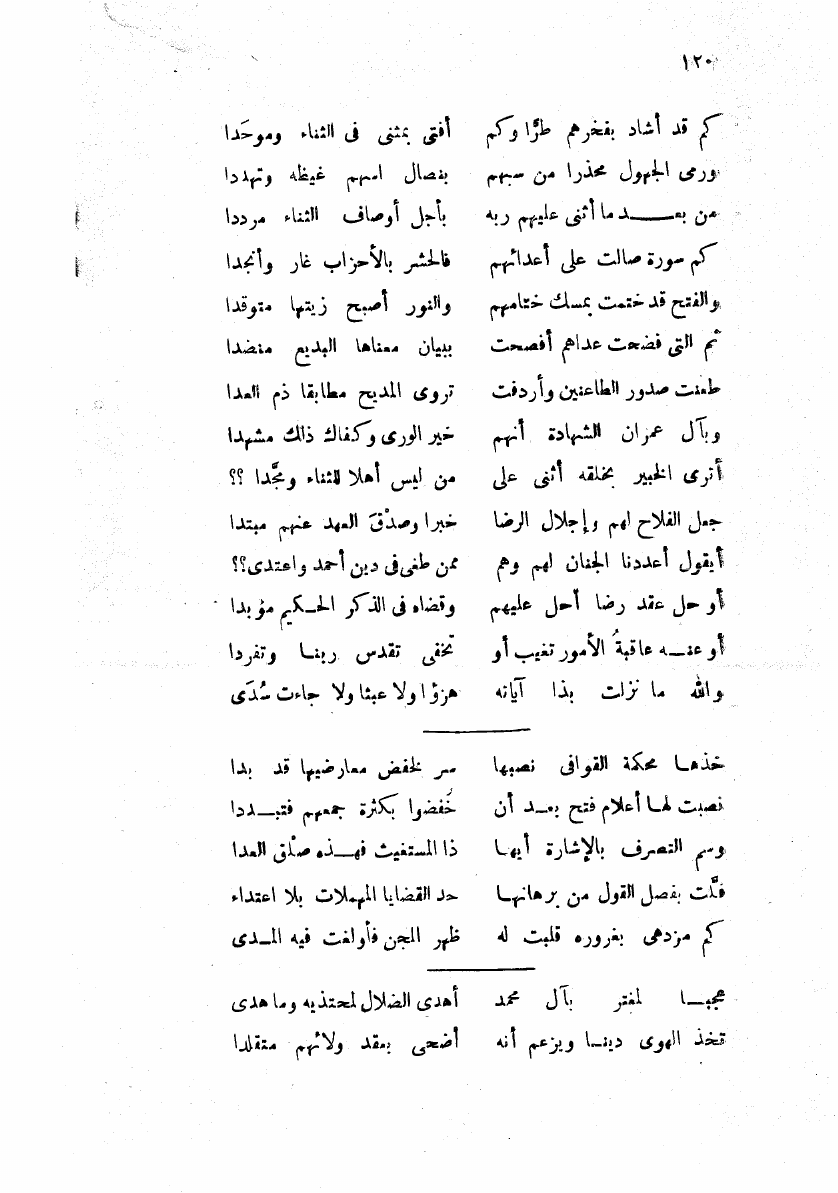 ١٢٠
كم قد أشاد بفخرهم طرًّا وكم أفتى بمثنى فى الثناء وموحَدا
ورمى الجهول محذرا من سبهم بفصال امهم غيظه وتهددا
من بعــد ما أثنى عليهم ربه بأجل أوصاف الثناء مرددا
كم سورة صالت على أعدائهم فالحشر بالأحزاب غار وأنجدا
والفتح قد ختمت بمسك ختامهم والنور أصبح زيتها متوقدا
ثم التى فضحت عداهم أفصحت ببيان معناها البديع منضدا
طعنت صدور الطاعنين وأردفت تروى المديح مطابقا ذم العدا
وبآل عمران الشهادة أنهم خير الورى وكفاك ذلك مشهدا
أترى الخبير بخلقه أثنى على من ليس أهلا للثناء ومجَّدا ؟؟
جعل الفلاح لهم وإجلال الرضا خبرا وصدْقَ العهد عنهم مبتدا
أيقول أعددنا الجنان لهم وهم ممن طغى فى دين أحمد واعتدى؟؟
أو حل عقد رضا أحل عليهم وقضاه فى الذكر الحـكيم مؤبدا
أو عنــه عاقبةُ الأمور تغيب أو تخفى تقدس ربنـا وتفردا
والله ما نزلت بذا آياته هزؤا ولا عبثا ولا جاءت سُدَى
خذهـا محكمة القوافى نصبها سر لخفض معارضيها قد بدا
نصبت لهـا أعلام فتح بعـد أن خُفضوا بكثرة جمعهم فتبـددا
وسم التصرف بالإشارة أيهـا ذا المستغيث فهـذه صلْق العدا
فلَّت بفصل القول من برهانهـا حد القضايا المهملات بلا اعتداء
كم مزدهى بغروره قلبت له ظهر المجن فأولغت فيه المـدى
عجبــا لمفتر بآل محمد أهدى الضلال لمحتذيه وما هدى
تخذ الهوى دينـا ويزعم أنه أضحى بعقد ولائهم متقلدا